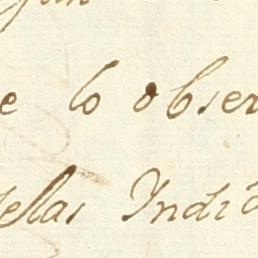 e lo obser
delas Indi